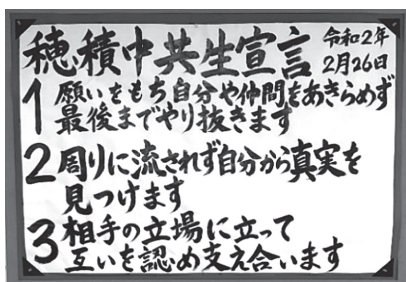 穂積中共生宣言 令和2年
2月26日
1 願いをもち自分や仲間をあきらめず
最後までやり抜きます
2 周りに流されず自分から真実を
見つけます
3 相手の立場に立って
互いを認め支え合います